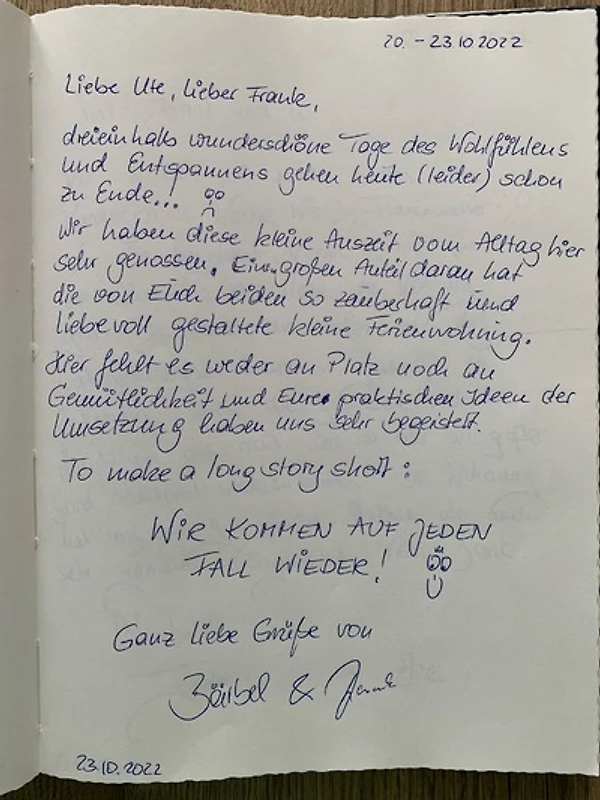 20. - 23.10.2022
Liebe Ute, lieber Frank,
dreieinhalb wunderschöne Tage des Wohlfühlens
und Entspannens gehen heute (leider) schon
zu Ende...
Wir haben diese kleine Auszeit vom Alltag hier
sehr genossen. Ein großen Anteil daran hat
die von Euch beiden so zauberhaft und
liebevoll gestaltete kleine Ferienwohnung.
Hier fehlt es weder an Platz noch an
Gemütlichkeit und Eure praktischen Ideen der
Umsetzung haben uns sehr begeistert.
To make a long story short:
WIR KOMMEN AUF JEDEN
FALL WIEDER!
Ganz liebe Grüße von
Bärbel &
23.10.2022